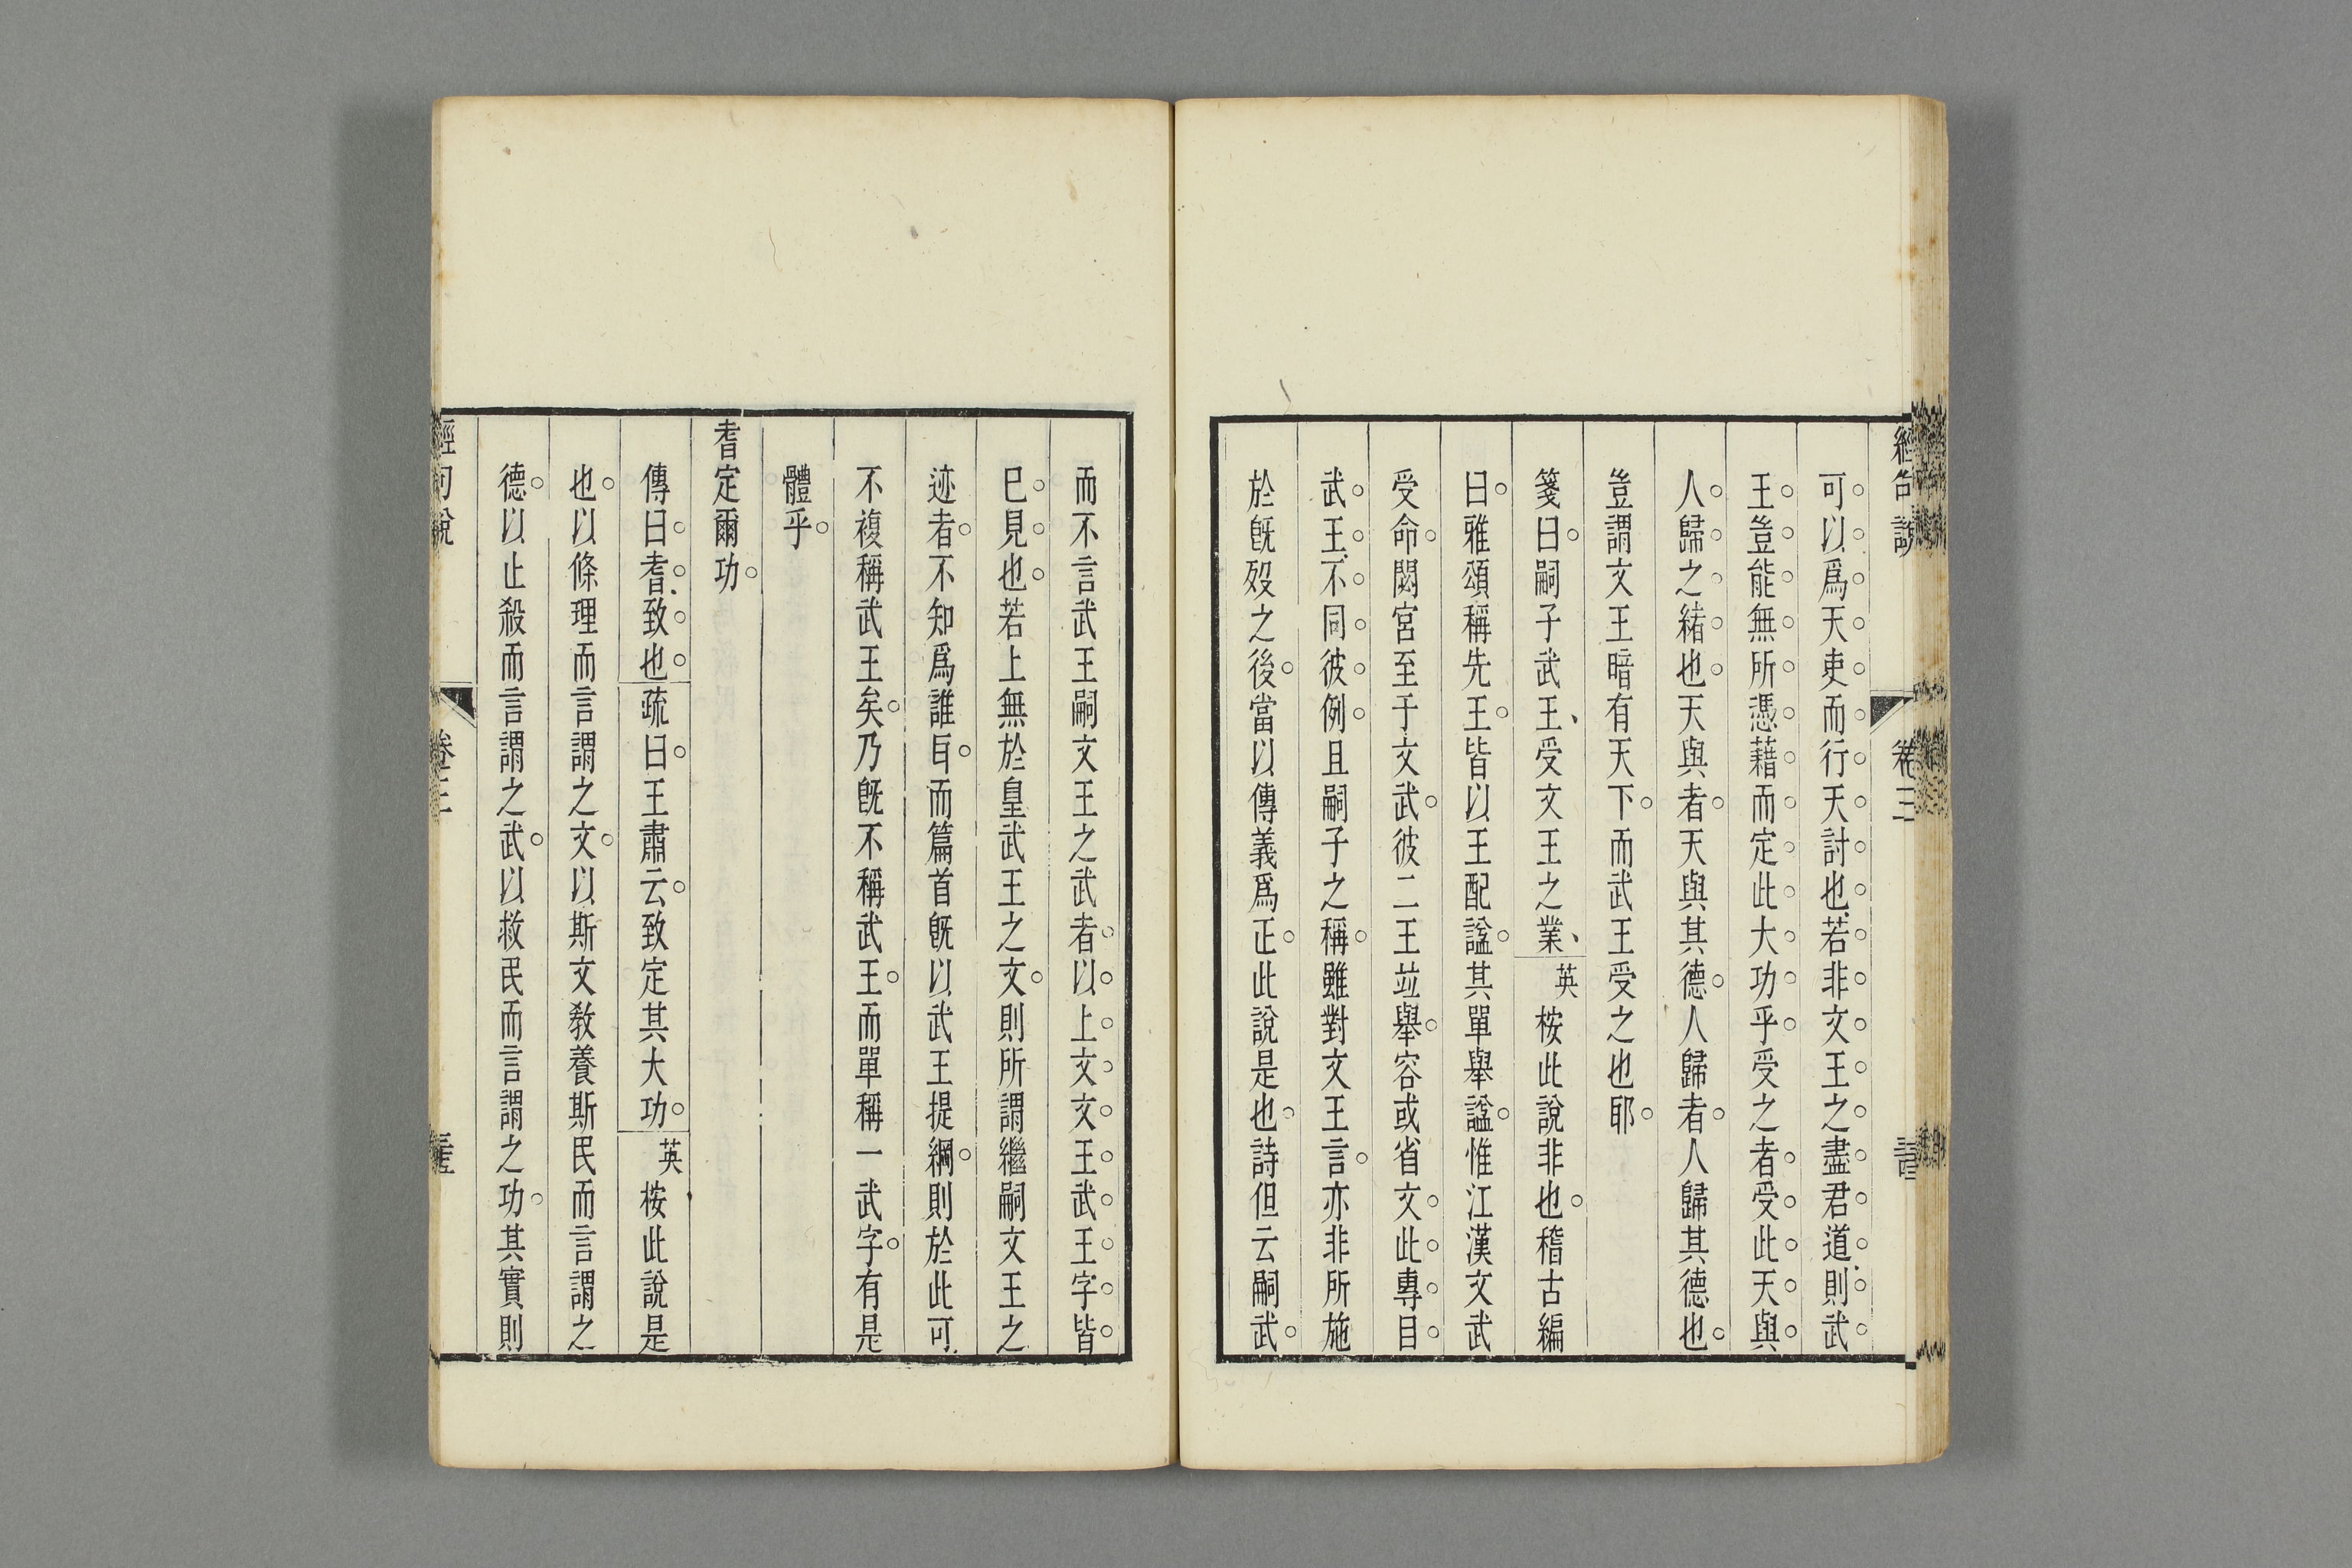 可以爲天吏而行天討也若非文王之盡君道則武
王豈能無所憑藉而定此大功乎受之者受此天與
人歸之緒也天與者天與其德人歸者人歸其德也
豈謂文王暗有天下而武王受之也耶
箋曰嗣子武王受文王之業英桉此說非也稽古編
曰雅頌稱先王皆以王配諡其單舉諡惟江漢文武
受命閟宮至于文武彼二王竝舉容或省文此專目
武王不同彼例且嗣子之稱雖對文王言亦非所施
於旣歿之後當以傳義爲正此說是也詩但云嗣武
而不言武王嗣文王之武者以上文文王武王字皆
巳見也若上無於皇武王之文則所謂繼嗣文王之
迹者不知爲誰㠯而篇首旣以武王提綱則於此可
不複稱武王矣乃旣不稱武王而單稱一武字有是
體乎
耆定爾功
傳曰耆致也疏曰王肅云致定其大功英桉此說是
也以條理而言謂之文以斯文敎養斯民而言謂之
德以止殺而言謂之武以救民而言謂之功其實則
卷三